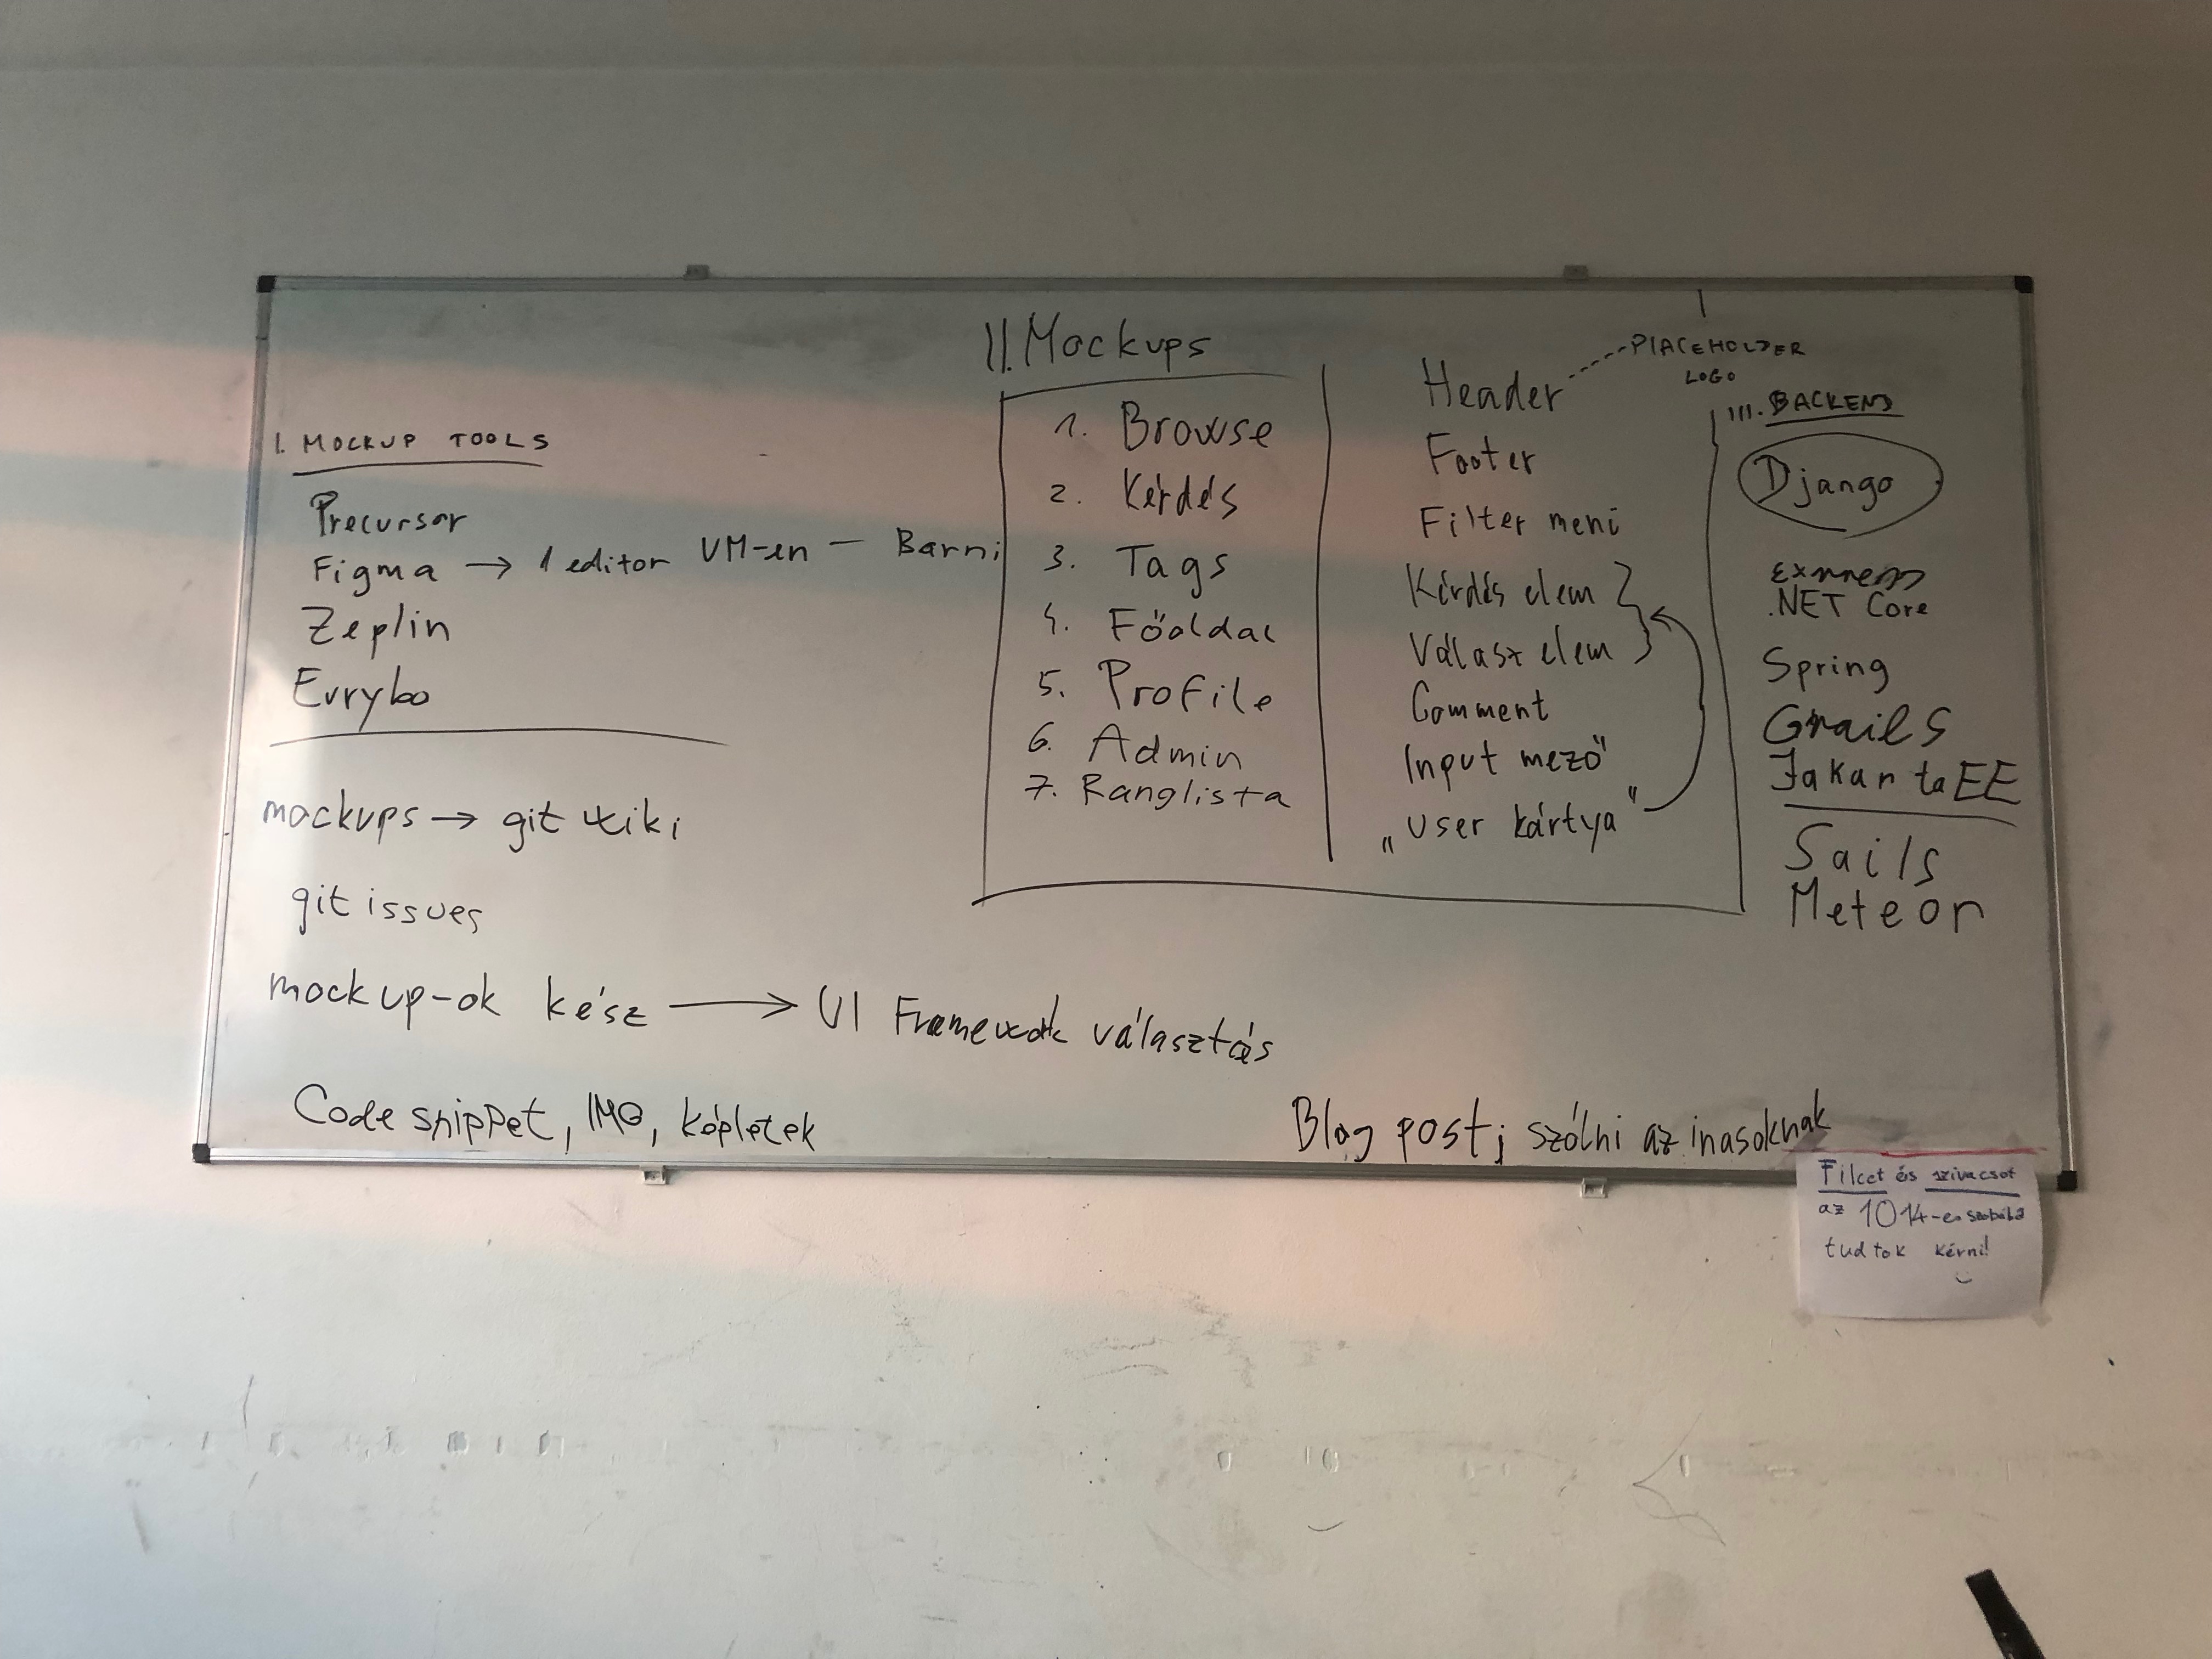 I. MOCKUP TOOLS
Precursor
Figma → 1 editor VM-en — Barni
Zeplin
Evrybo
mockups → git wiki
git issues
mockup-ok kész → UI Framework választás
Code snippet, IMG, képletek
II. Mockups
1. Browse
2. Kérdés
3. Tags
4. Főoldal
5. Profile
6. Admin
7. Ranglista
Header
PLACEHOLDER
LOGO
Footer
Filter meni
Kérdés elem
Válasz elem
Comment
Input mező
„User kártya"
III. BACKEND
Django
Express
.NET Core
Spring
Grails
Jakarta EE
Sails
Meteor
Blog post; szólni az inasoknak
Filcet és szivacsot
az 1014-es szobába
tudtok kérni!